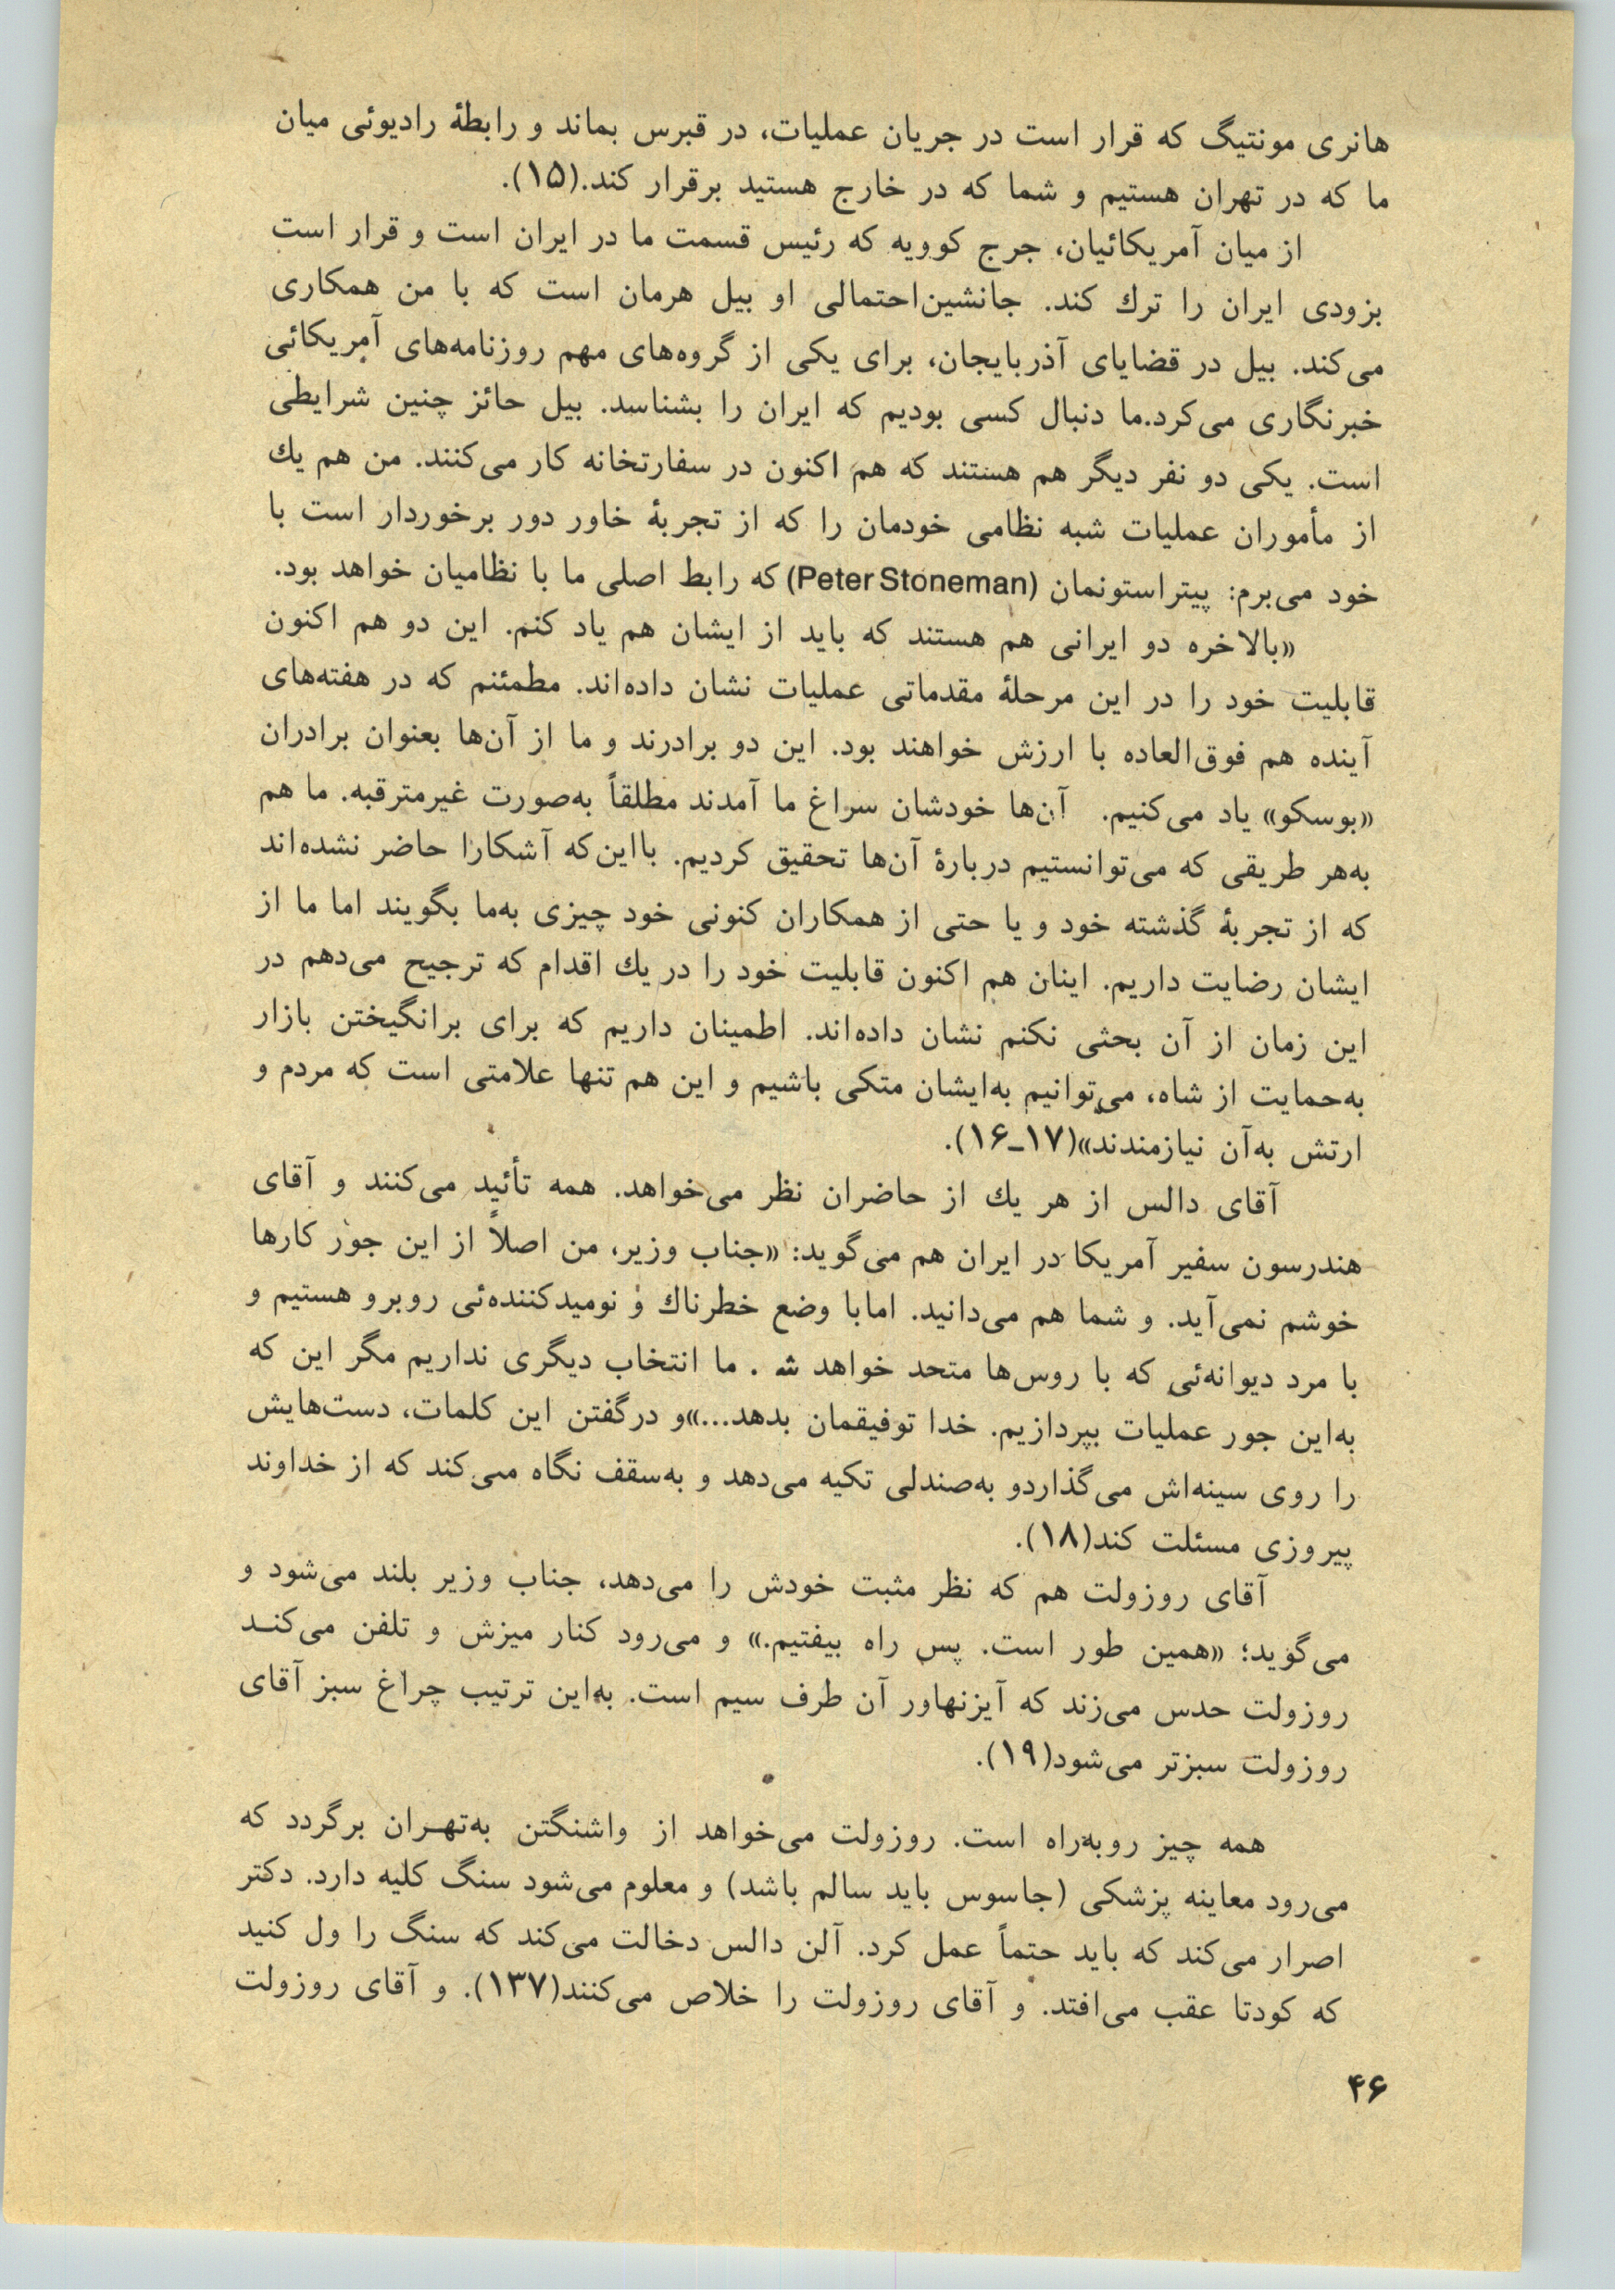 هانری مونتیگ که قرار است در جریان عملیات، در قبرس بماند و رابطهٔ رادیوئی میان
ما که در تهران هستیم و شما که در خارج هستید برقرار کند.(۱۵).
از میان آمریکائیان، جرج کوویه که رئیس قسمت ما در ایران است و قرار است
بزودی ایران را ترك کند. جانشین‌احتمالی او بیل هرمان است که با من همکاری
می‌کند. بیل در قضایای آذربایجان، برای یکی از گروه‌های مهم روزنامه‌های آمریکائی
خبرنگاری می‌کرد.ما دنبال کسی بودیم که ایران را بشناسد. بیل حائز چنین شرایطی
است. یکی دو نفر دیگر هم هستند که هم اکنون در سفارتخانه کار می‌کنند. من هم یك
از مأموران عملیات شبه نظامی خودمان را که از تجربهٔ خاور دور برخوردار است با
خود می‌برم: پیتراستونمان (Peter Stoneman) که رابط اصلی ما با نظامیان خواهد بود.
«بالاخره دو ایرانی هم هستند که باید از ایشان هم یاد کنم. این دو هم اکنون
قابلیت خود را در این مرحلهٔ مقدماتی عملیات نشان داده‌اند. مطمئنم که در هفته‌های
آینده هم فوق‌العاده با ارزش خواهند بود. این دو برادرند و ما از آن‌ها بعنوان برادران
«بوسکو» یاد می‌کنیم. آن‌ها خودشان سراغ ما آمدند مطلقاً به‌صورت غیرمترقبه. ما هم
به‌هر طریقی که می‌توانستیم دربارهٔ آن‌ها تحقیق کردیم. بااین‌که آشکارا حاضر نشده‌اند
که از تجربهٔ گذشته خود و یا حتی از همکاران کنونی خود چیزی به‌ما بگویند اما ما از
ایشان رضایت داریم. اینان هم اکنون قابلیت خود را در یك اقدام که ترجیح می‌دهم در
این زمان از آن بحثی نکنم نشان داده‌اند. اطمینان داریم که برای برانگیختن بازار
به‌حمایت از شاه، می‌توانیم به‌ایشان متکی باشیم و این هم تنها علامتی است که مردم و
ارتش به‌آن نیازمندند»(۱۷ـ۱۶).
آقای دالس از هر یك از حاضران نظر می‌خواهد. همه تأئید می‌کنند و آقای
هندرسون سفیر آمریکا در ایران هم می‌گوید: «جناب وزیر، من اصلاً از این جور کارها
خوشم نمی‌آید. و شما هم می‌دانید. امابا وضع خطرناك و نومیدکننده‌ئی روبرو هستیم و
با مرد دیوانه‌ئی که با روس‌ها متحد خواهد ش . ما انتخاب دیگری نداریم مگر این که
به‌این جور عملیات بپردازیم. خدا توفیقمان بدهد...»و درگفتن این کلمات، دست‌هایش
را روی سینه‌اش می‌گذاردو به‌صندلی تکیه می‌دهد و به‌سقف نگاه می‌کند که از خداوند
پیروزی مسئلت کند(۱۸).
آقای روزولت هم که نظر مثبت خودش را می‌دهد، جناب وزیر بلند می‌شود و
می‌گوید؛ «همین طور است. پس راه بیفتیم.» و می‌رود کنار میزش و تلفن می‌کنـد
روزولت حدس می‌زند که آیزنهاور آن طرف سیم است. به‌این ترتیب چراغ سبز آقای
روزولت سبزتر می‌شود(۱۹).
همه چیز روبه‌راه است. روزولت می‌خواهد از واشنگتن به‌تهـران برگردد که
می‌رود معاینه پزشکی (جاسوس باید سالم باشد) و معلوم می‌شود سنگ کلیه دارد. دکتر
اصرار می‌کند که باید حتماً عمل کرد. آلن دالس دخالت می‌کند که سنگ را ول کنید
که کودتا عقب می‌افتد. و آقای روزولت را خلاص می‌کنند(۱۳۷). و آقای روزولت
۴۶